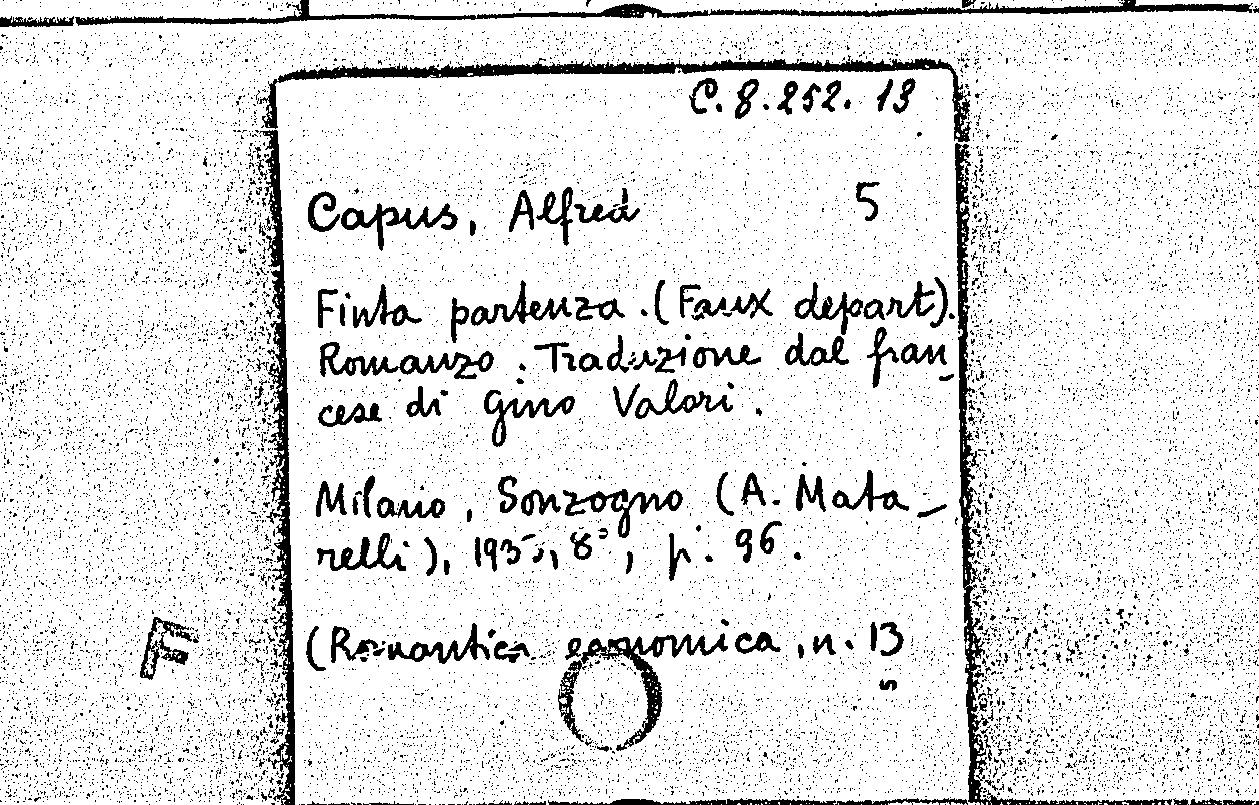 C. 8. 252. 13
Capus, Alfred 5
Finta partenza. (Faux depart).
Romanzo. Traduzione dal fran_
cese di Gino Valori.
Milano, Sonzogno (A. Mata_
relli), 8°, p. 96.
(Romantica economica, n. 13
F